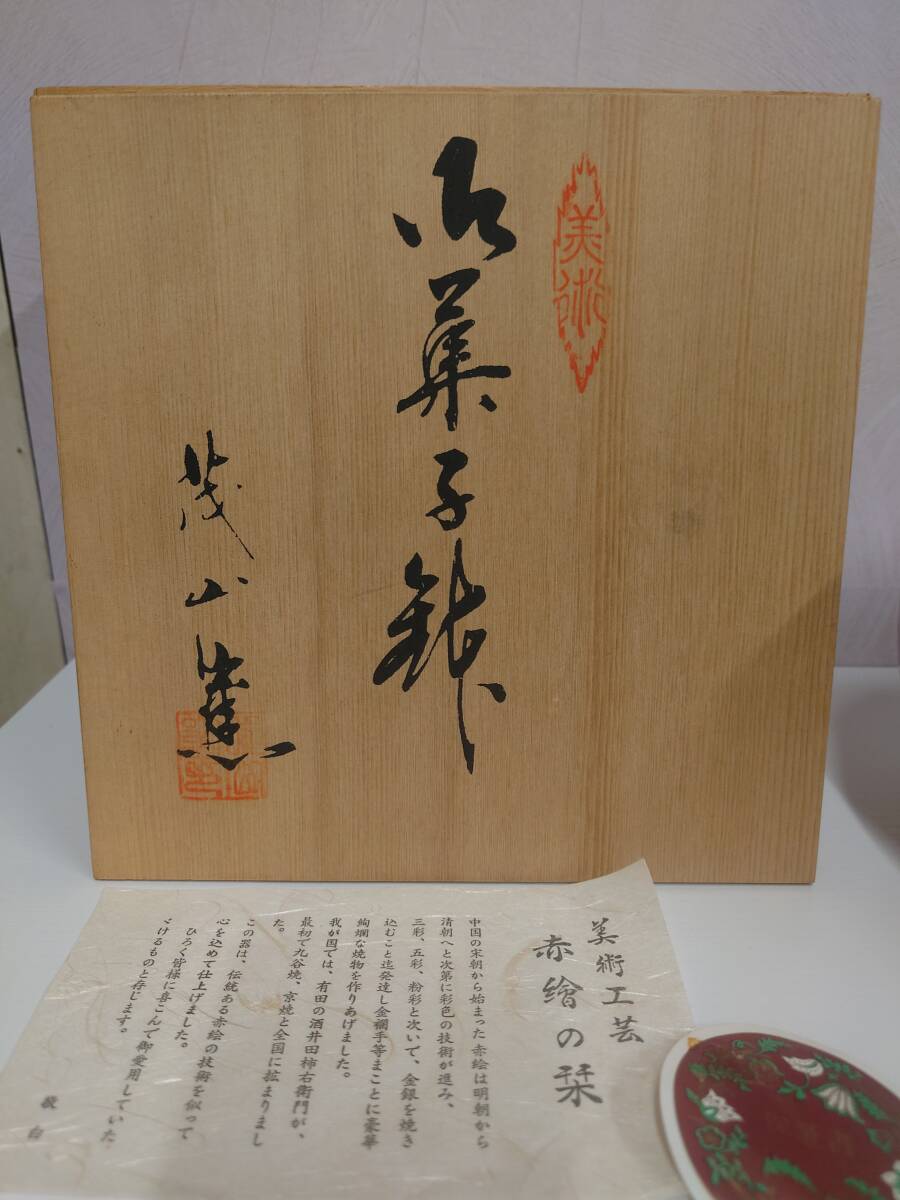 美術
御菓子鉢
茂山窯
美術工芸
赤繪の栞
中国の宋朝から始まった赤絵は明朝から
清朝へと次第に彩色の技術が進み、
三彩、五彩、粉彩と次いで、金銀を焼き
込むこと迄発達し金襴手等まことに豪華
絢爛な焼物を作りあげました。
我が国では、有田の酒井田柿右衛門が、
最初で九谷焼、京焼と全国に拡まりまし
た。
この器は、伝統ある赤絵の技術を似って
心を込めて仕上げました。
ひろく皆様に喜こんで御愛用していた
ゞけるものと存じます。
敬白